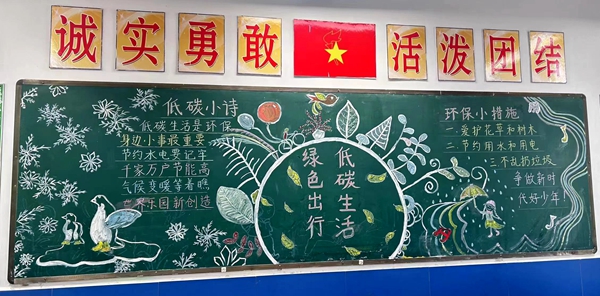 诚实勇敢 活泼团结
低碳小诗
低碳生活是环保
身边小事最重要
节约水电要记牢
千家万户节能高
气候变暖等着瞧
世界乐园新创造
低碳生活
绿色出行
环保小措施
一.爱护花草和树木
二.节约用水和用电
三不乱扔垃圾
争做新时
代好少年!